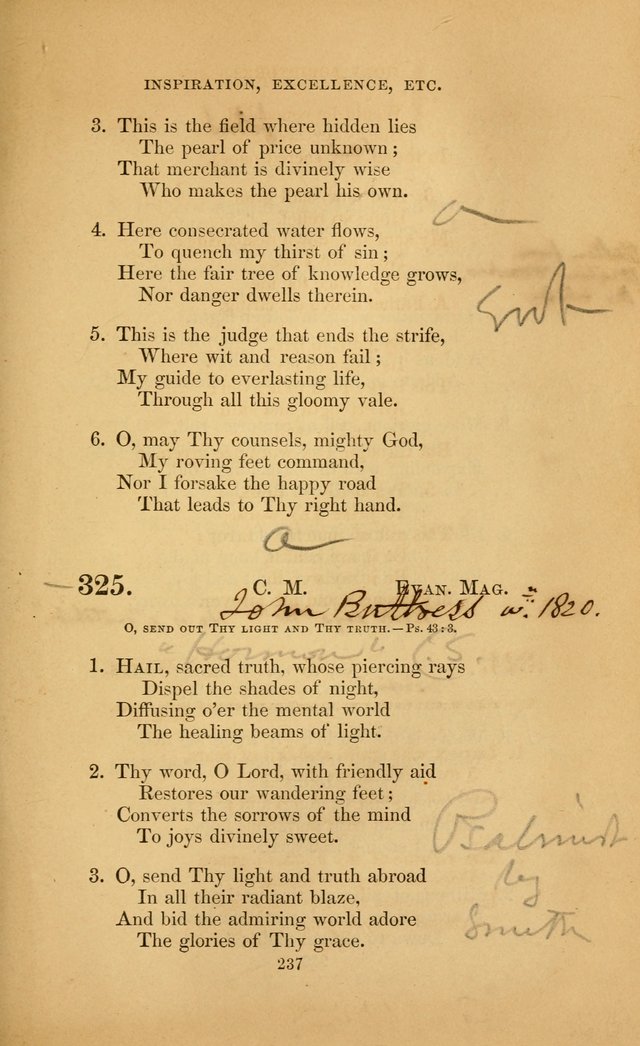 INSPIRATION, EXCELLENCE, ETC.
3. This is the field where hidden lies
The pearl of price unknown;
That merchant is divinely wise
Who makes the pearl his own.
a
4. Here consecrated water flows,
To quench my thirst of sin;
Here the fair tree of knowledge grows,
Nor danger dwells therein.
5. This is the judge that ends the strife,
Where wit and reason fail;
My guide to everlasting life,
Through all this gloomy vale.
6. O, may Thy counsels, mighty God,
My roving feet command,
Nor I forsake the happy road
That leads to Thy right hand.
a
325. C. M. EVAN. MAG.
John Buttress 1820.
O, SEND OUT THY LIGHT AND THY TRUTH.—Ps. 43:3.
"Hermon"
1. HAIL, sacred truth, whose piercing rays
Dispel the shades of night,
Diffusing o'er the mental world
The healing beams of light.
2. Thy word, O Lord, with friendly aid
Restores our wandering feet;
Converts the sorrows of the mind
To joys divinely sweet.
Psalmist
by
Smith
3. O, send Thy light and truth abroad
In all their radiant blaze,
And bid the admiring world adore
The glories of Thy grace.
237